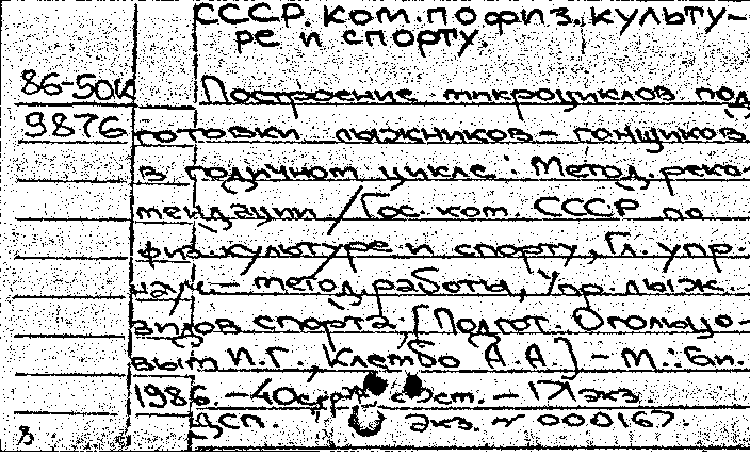 СССР. Ком. по физ. культу-
ре и спорту.
86-50к Построение микроциклов под
9876 готовки лыжников-гонщиков
в годичном цикле: Метод. реко-
мендации / Гос. ком. СССР по
физ. культуре и спорту, Гл. упр.
науч.-метод. работы, Упр. лыж.
видов спорта; [Подгот. Огольцо-
вым И.Г., А.А.] - М.: Б.и.
1986. - 40с. - 171 экз.
ДСП. Экз. № 000167.